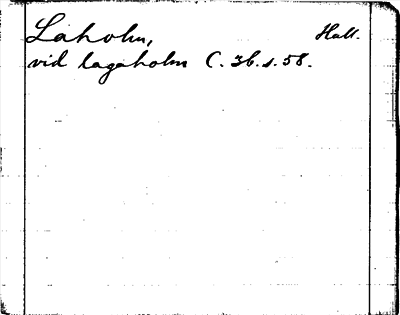 Laholm, Hall.
vid lagaholm C. 36. s. 58.